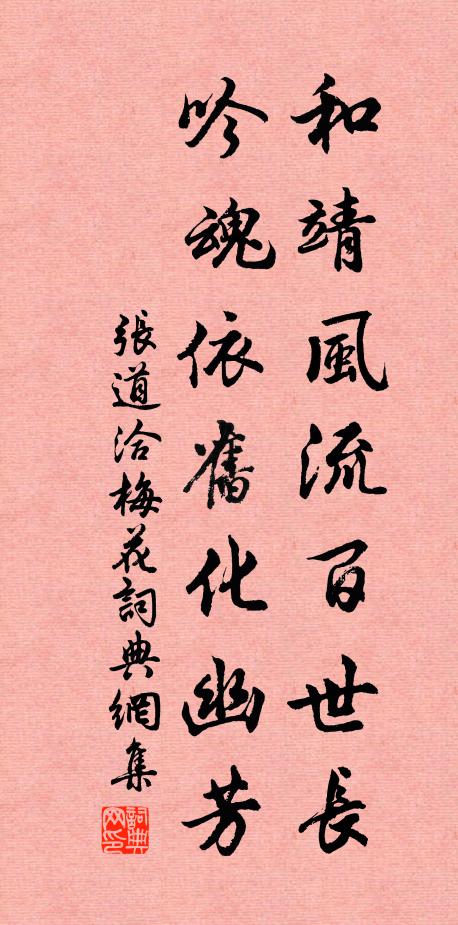 和靖風流百世長
吟魂依舊化幽芳
張道洽梅花詞典網集
詞典網印